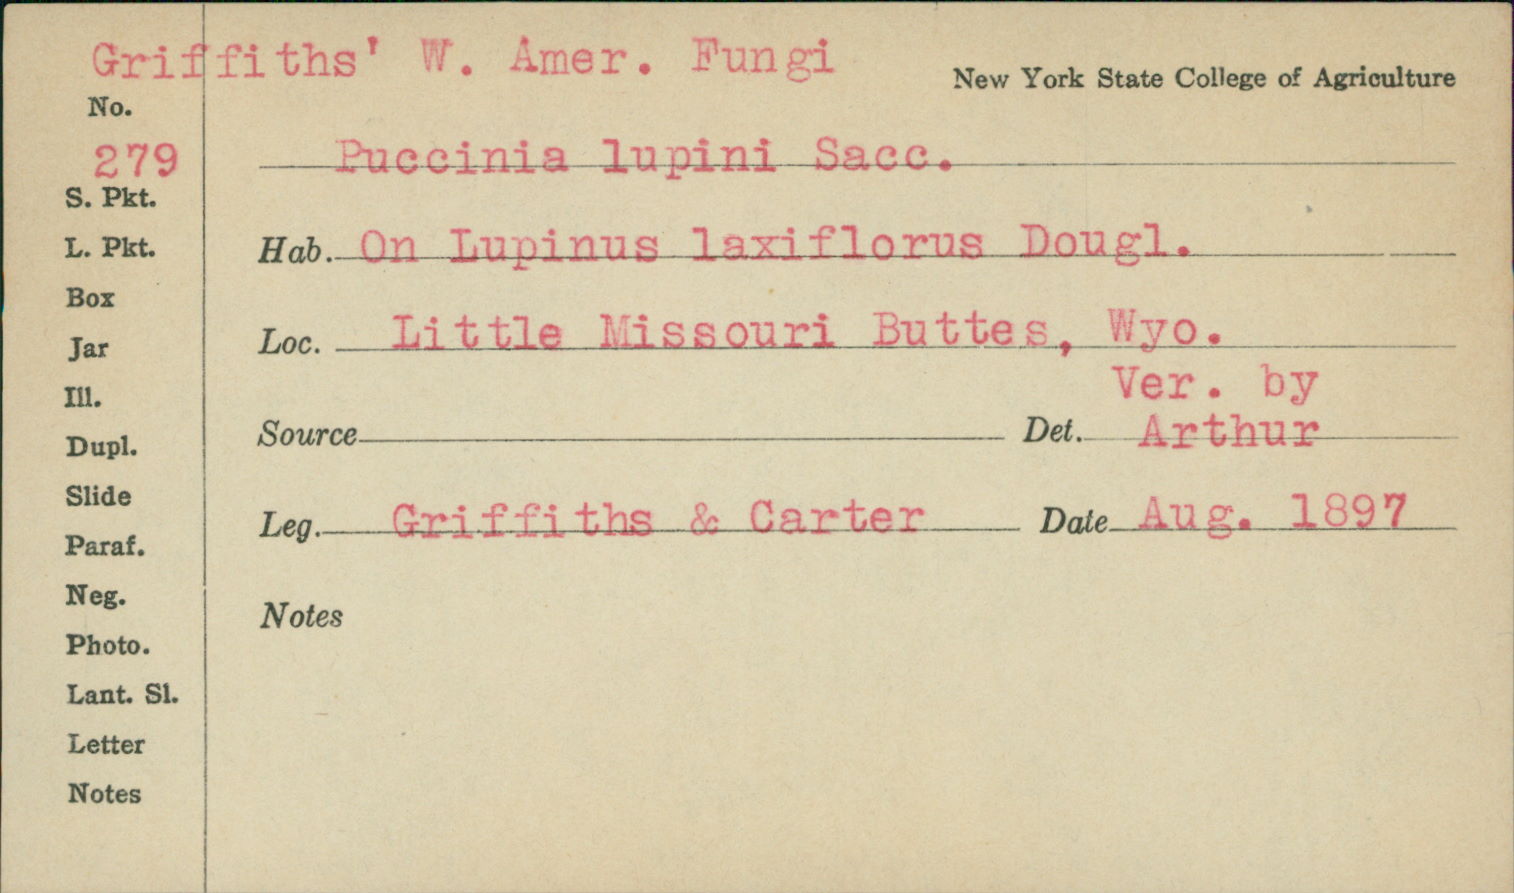 Griffiths' W. Amer. Fungi
New York State College of Agriculture
No.
279
Puccinia lupini Sacc.
S. Pkt.
L. Pkt.
Hab. On Lupinus laxiflorus Dougl.
Box
Jar
Loc. Little Missouri Buttes, Wyo.
Ill.
Ver. by
Dupl.
Source Det. Arthur
Slide
Leg. Griffiths & Carter Date Aug. 1897
Paraf.
Neg.
Notes
Photo.
Lant. Sl.
Letter
Notes